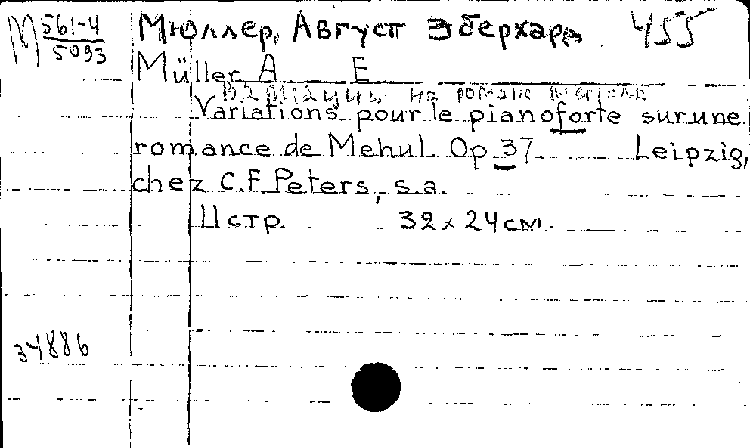 М 561-4
5093
Мюллер, Август Эберхард 455
Müller A E
Вариации на романс Мегюля
Variations pour le pianoforte sur une
romance de Mehul Op 37 Leipzig,
chez C.F. Peters, s.a.
11 стр. 32 x 24 см.
34886